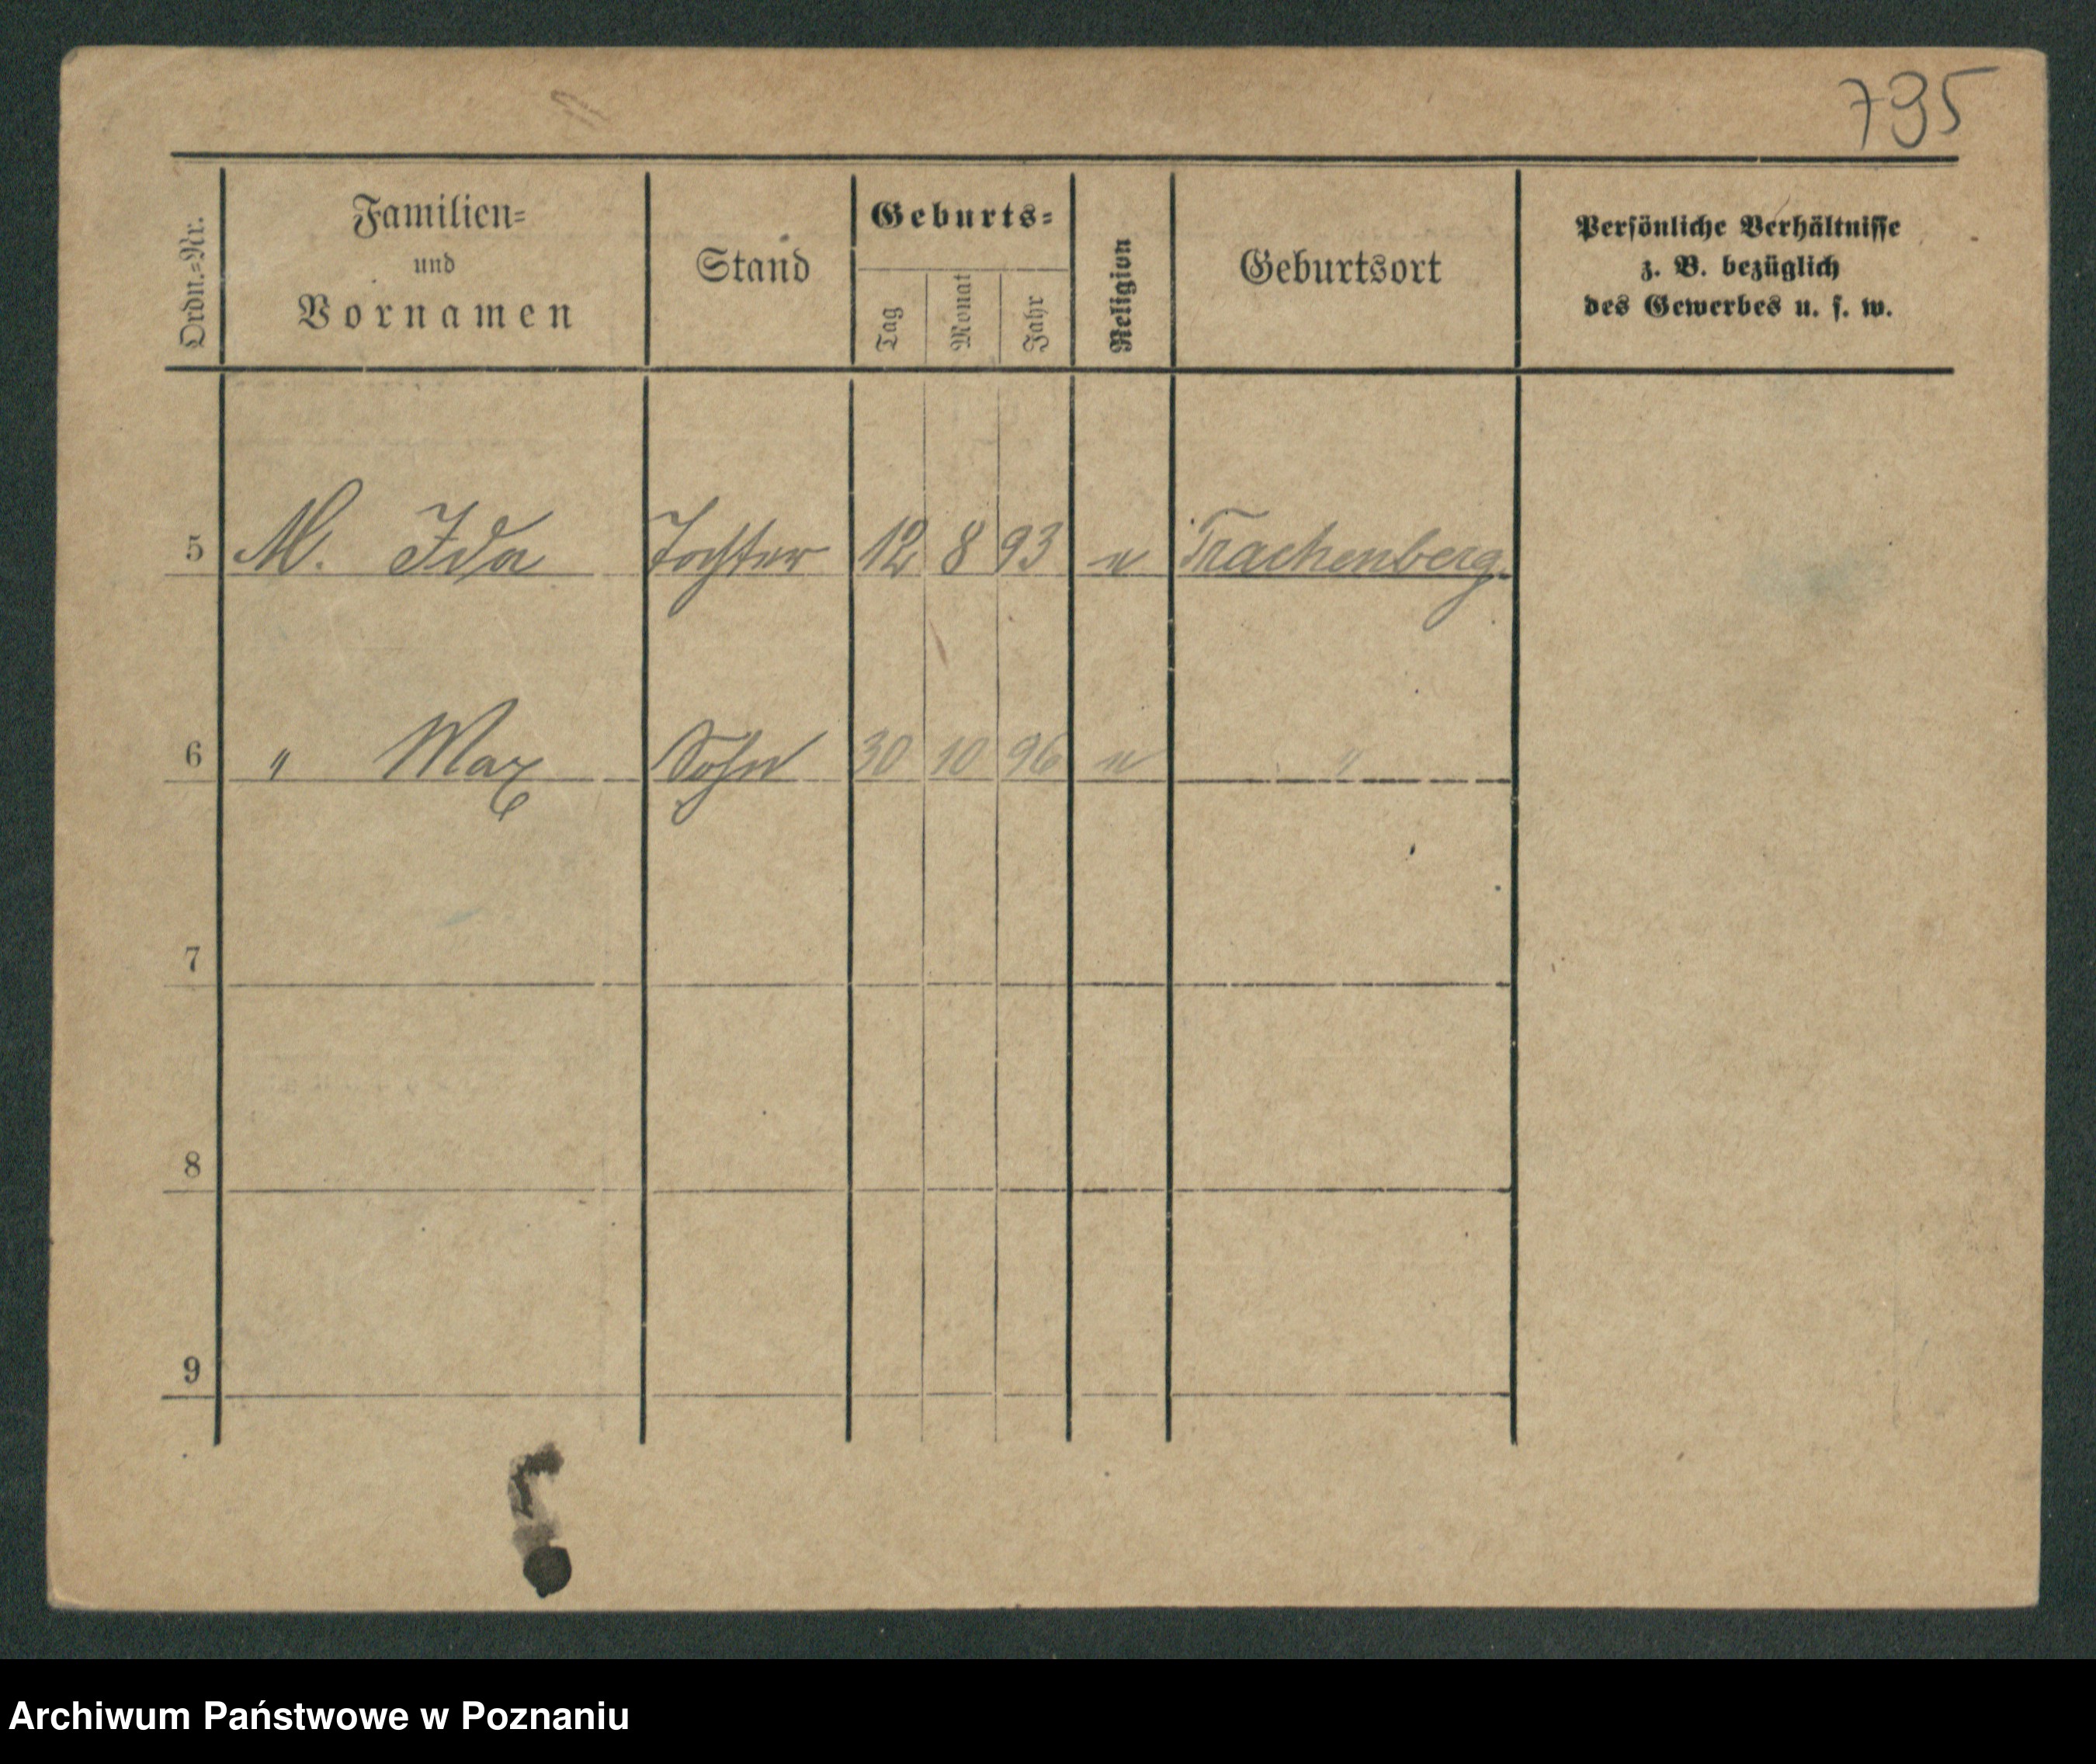 735
Ordn.-Nr.
Familien-
und
Vornamen
Stand
Geburts-
Tag
Monat
Jahr
Religion
Geburtsort
Persönliche Verhältnisse
z. B. bezüglich
des Gewerbes u. s. w.
5 M. Ida Tochter 12 8 93 Trachenberg.
6 " Max Sohn 30 10 96 "
7
8
9
Archiwum Państwowe w Poznaniu